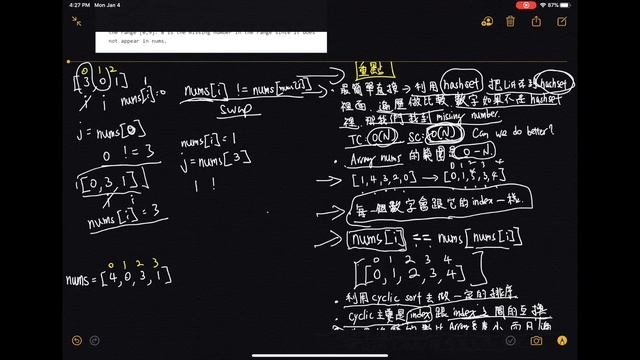 4:27 PM Mon Jan 4
87%
the range [0,9]. 8 is the missing number in the range since it does
not appear in nums.
0 1 2
[3, 0, 1]
nums[i]=0
j = nums[0]
0 != 3
[0, 3, 1]
nums[i] = 3
nums[i] != nums[nums[i]]
swap
nums[i] = 1
j = nums[3]
1 !
0 1 2 3
nums = [4, 0, 3, 1]
重點
最簡單直接 → 利用 hashset 把 List 丟到 hashset
裡面，遍歷做比較，數字如果不在 hashset
裡，那我們找到 missing number.
TC: O(N) SC: O(N) Can we do better?
Array nums 的範圍是 0-N
0 1 2 3 4
[1,4,3,2,0] → [0,1,2,3,4]
每一個數字會跟它的index一樣.
nums[i] == nums[nums[i]]
0 1 2 3 4
[0, 1, 2, 3, 4]
利用 cyclic sort 去做一定的排序
cyclic 主要是 index 跟 index 之間的互換